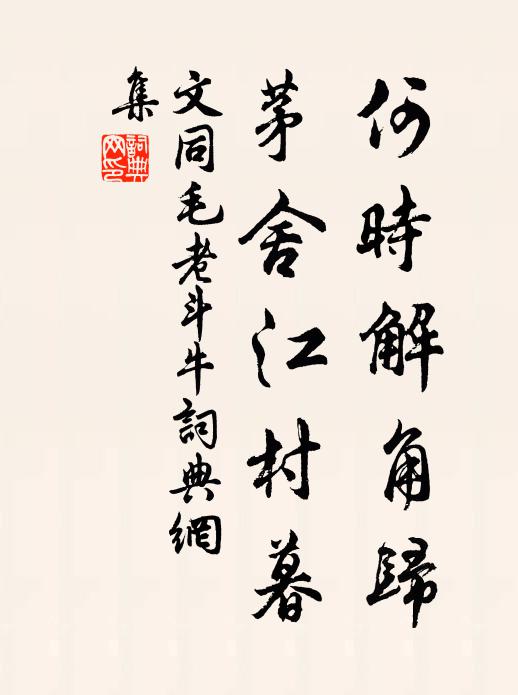 何時解角歸
茅舍江村暮
文同毛老斗牛詞典網
集
詞典網印